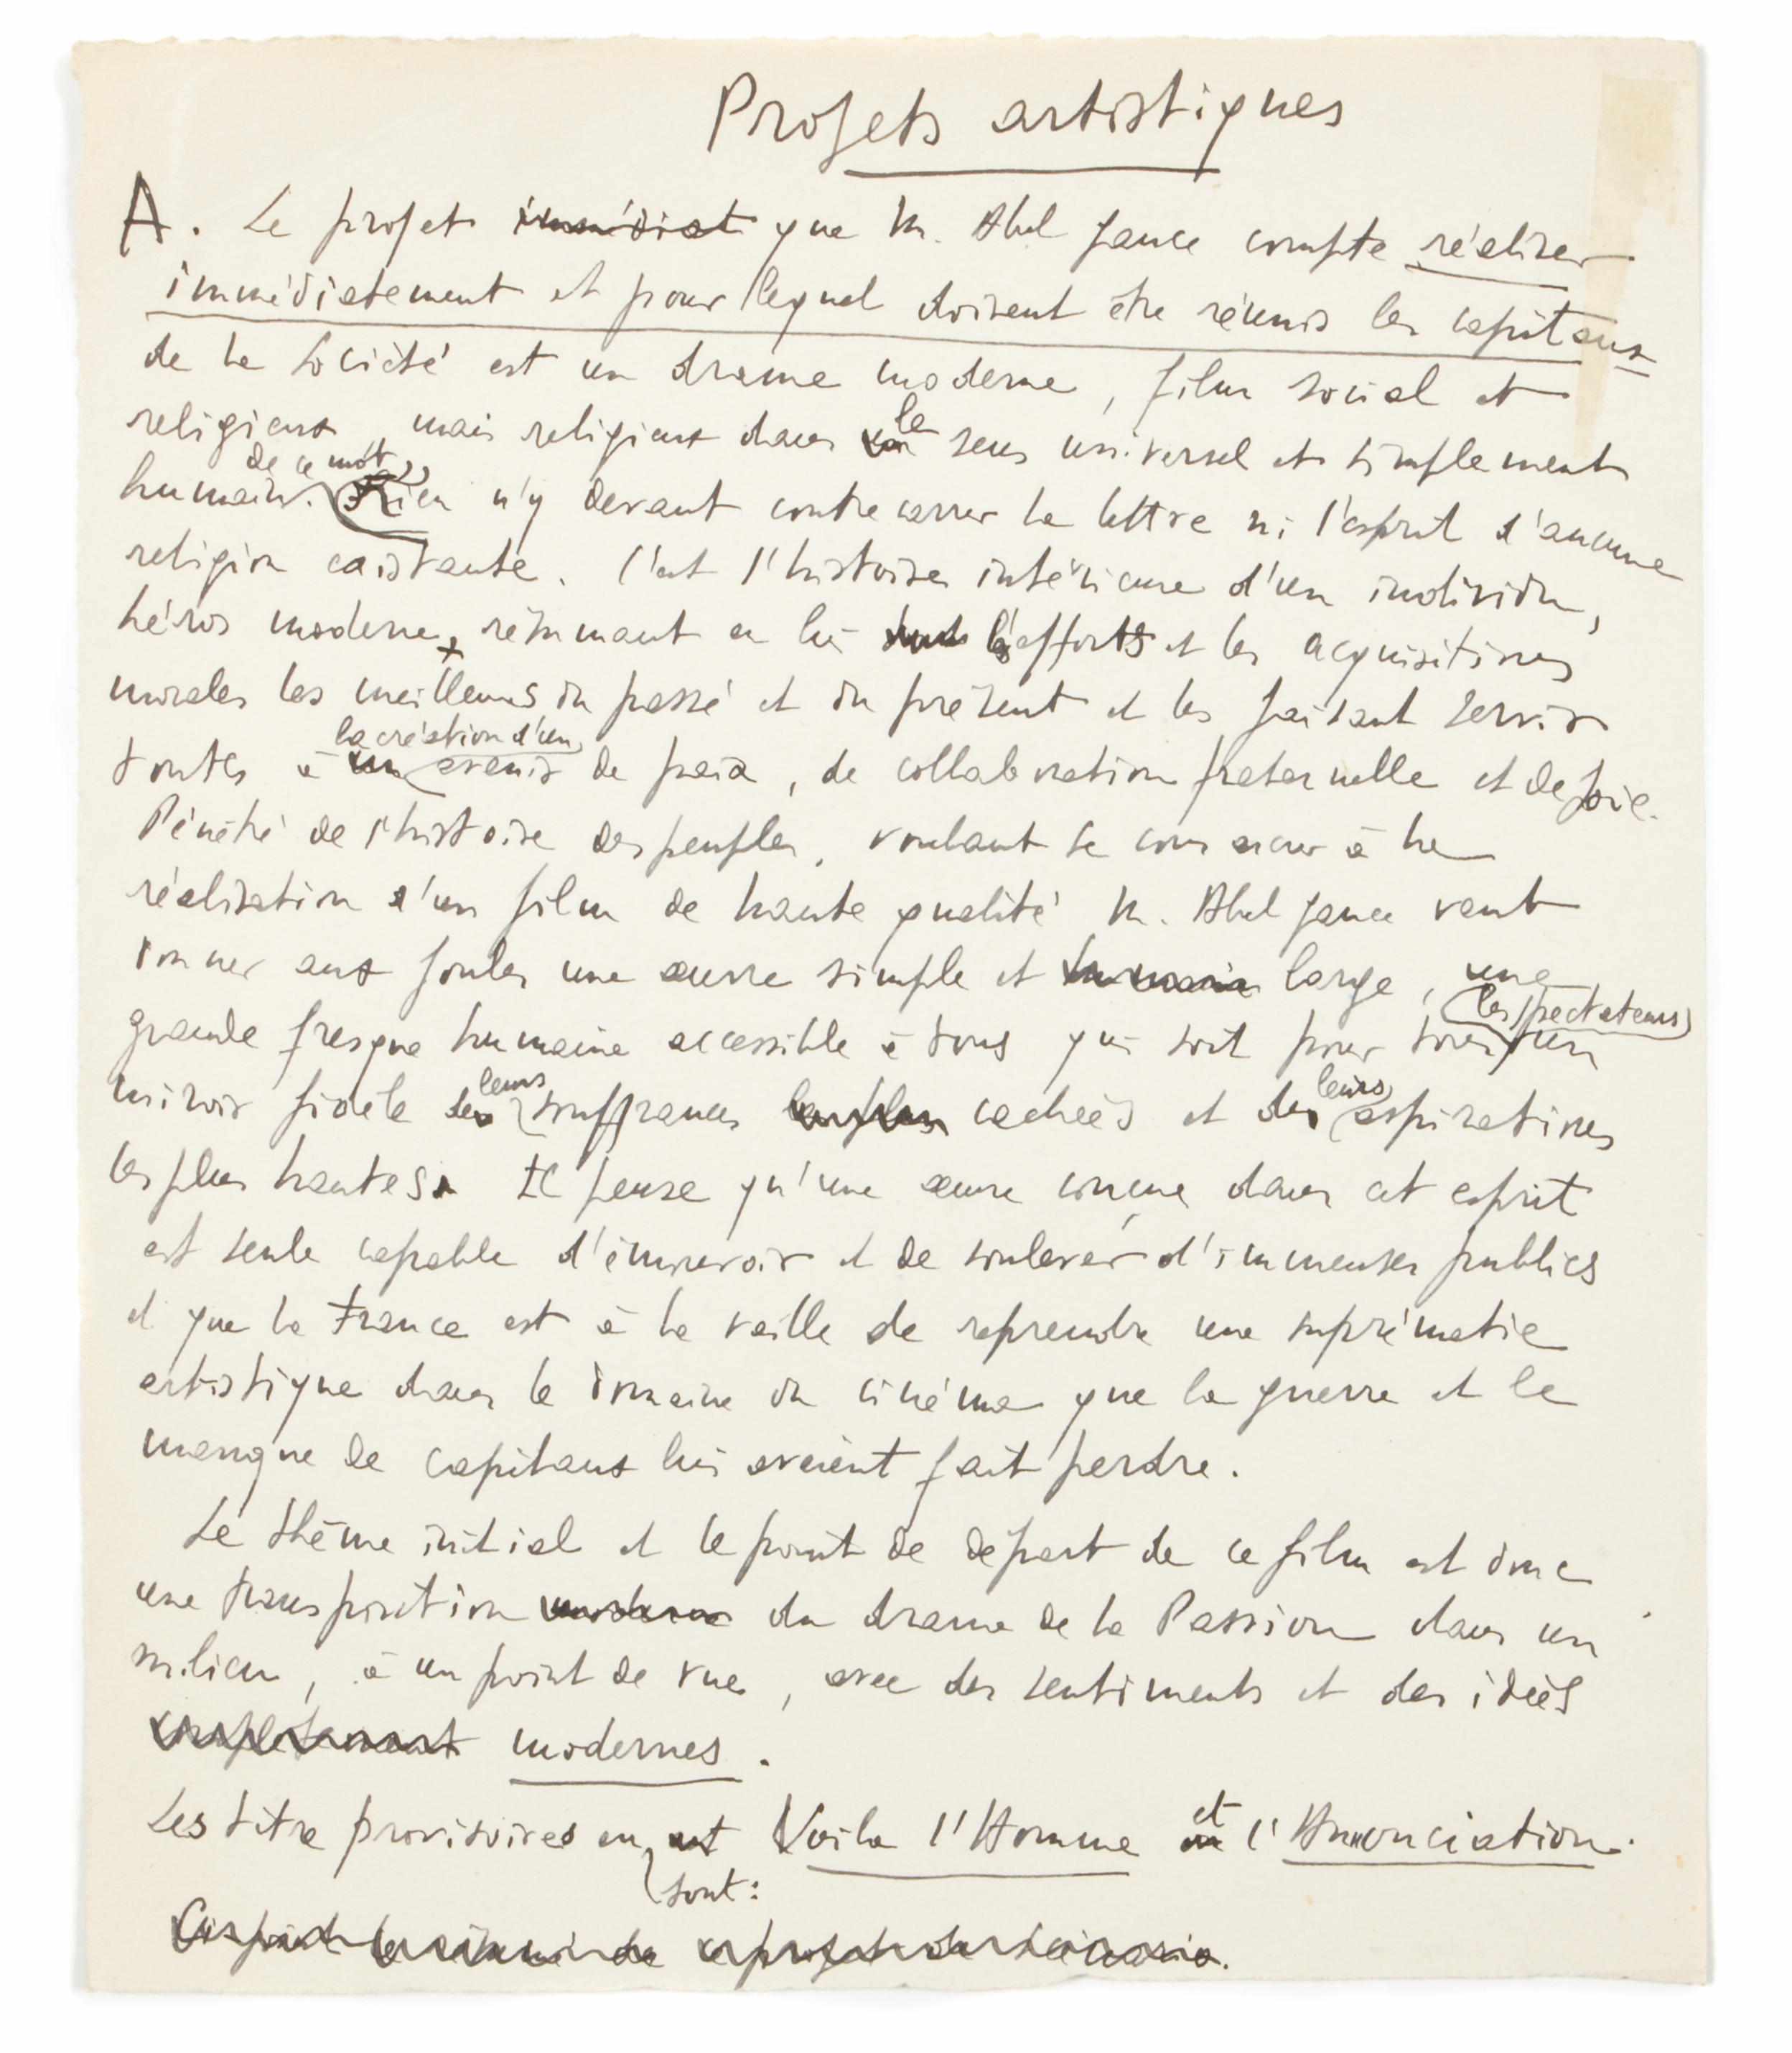 Projets artistiques
A. Le projet immédiat que M. Abel Gance compte réaliser
immédiatement et pour lequel doivent être réunis les capitaux
de la Société est un drame moderne, film social et
religieux, mais religieux dans un le sens universel et simplement
humain. de ce mot, Rien n'y devant contrecarrer la lettre ni l'esprit d'aucune
religion existante. C'est l'histoire intérieure d'un individu,
héros moderne, résumant en lui tout les efforts et les acquisitions
morales les meilleures du passé et du présent et les faisant servir
toutes à un la création d'un avenir de paix, de collaboration fraternelle et de joie.
Pénétré de l'histoire des peuples, voulant se consacrer à la
réalisation d'un film de haute qualité, M. Abel Gance veut
donner aux foules une œuvre simple et humaine large, une
grande fresque humaine accessible à tous qui soit pour tous les spectateurs un
miroir fidèle des leurs souffrances les plus cachées et des leurs aspirations
les plus hautes. Il pense qu'une œuvre conçue dans cet esprit
est seule capable d'émouvoir et de soulever d'immenses publics
et que la France est à la veille de reprendre une suprématie
artistique dans le domaine du cinéma que la guerre et le
manque de capitaux lui avaient fait perdre.
Le thême initial et le point de départ de ce film est donc
une transposition moderne du drame de la Passion dans un
milieu, à un point de vue, avec des sentiments et des idées
complètement modernes.
Les titre provisoires en est sont: Voila l'Homme ou et l'Annonciation.